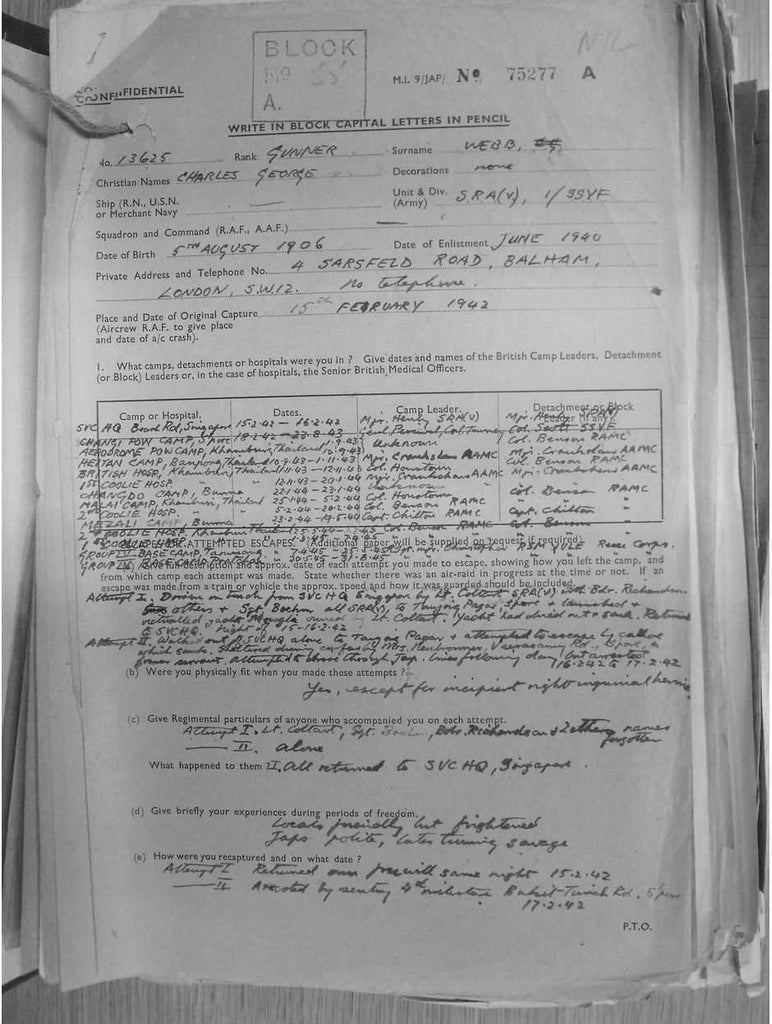 BLOCK
Nº 55
A.
CONFIDENTIAL
M.I. 9/JAP/ Nº 75277 A
WRITE IN BLOCK CAPITAL LETTERS IN PENCIL
No. 13625 Rank GUNNER Surname WEBB,
Christian Names CHARLES GEORGE Decorations none
Ship (R.N., U.S.N. or Merchant Navy — Unit & Div. (Army) S.R.A(V), 1/SSVF
Squadron and Command (R.A.F., A.A.F.) —
Date of Birth 5TH AUGUST 1906 Date of Enlistment JUNE 1940
Private Address and Telephone No. 4 SARSFELD ROAD, BALHAM,
LONDON, S.W.12. No telephone.
Place and Date of Original Capture 15TH FEBRUARY 1942
(Aircrew R.A.F. to give place
and date of a/c crash).
1. What camps, detachments or hospitals were you in ? Give dates and names of the British Camp Leaders, Detachment
(or Block) Leaders or, in the case of hospitals, the Senior British Medical Officers.
Camp or Hospital. Dates. Camp Leader. Detachment or Block Leader
SVC HQ Beach Rd, Singapore 15.2.42 — 16.2.42 Mjr. Henly SRA(V) Mjr. Henly
CHANGI POW CAMP, S'pore 18.2.42 — 23.8.43 Col. Scott SSVF
AERODROME POW CAMP, Khanburi, Thailand 1.9.43 Unknown Col. Benson RAMC
Banpong, Thailand 10.9.43 - 1.11.43 Mjr. Crankshaw AAMC Mjr. Crankshaw AAMC
BRITISH HOSP, Khanburi, Thailand 1.11.43 — 12.11.43 Col. Houston Col. Benson RAMC
1ST COOLIE HOSP. " " 12.11.43 - 20.1.44 Mjr. Crankshaw AAMC Mjr. Crankshaw AAMC
CHANGDO CAMP, Burma 22.1.44 - 23.1.44 Unknown "
MALAI CAMP, Khanburi, Thailand 25.1.44 - 5.2.44 Col. Houston Col. Benson RAMC
2ND COOLIE HOSP. " " 5.2.44 - 20.2.44 Col. Benson RAMC "
MEZALI CAMP, Burma 23.2.44 - 19.5.44 Capt. Chilton Capt. Chilton
2ND COOLIE HOSP, Khanburi, Col. Benson RAMC Col. Benson
ATTEMPTED ESCAPES. (Additional paper will be supplied on request if required).
GROUP IV BASE CAMP, 7.4.45 - RSM YULE Corps.
GROUP IV BASE CAMP 31.8.45
description and approx. date of each attempt you made to escape, showing how you left the camp, and
from which camp each attempt was made. State whether there was an air-raid in progress at the time or not. If an
escape was made from a train or vehicle the approx. speed and how it was guarded should be included.
Attempt I. Driven on truck from SVC HQ Singapore by Lt. Coltart SRA(V) with Bdr. Richardson
others & Sgt. Boehm all SRA(V) to Tanjong Pagar, S'pore & launched &
yacht owned by Lt. Coltart. Yacht had dried out & sank. Returned
to SVCHQ. Night of 15-16.2.42.
Attempt II. Walked out of SVCHQ alone to Tanjong Pagar & attempted to escape by
which sank. Sheltered during by Mrs. Rd., S'pore, a
former servant. Attempted to through Jap. lines following day, but arrested
16.2.42 to 17.2.42
(b) Were you physically fit when you made these attempts ?
Yes, except for incipient right inguinal hernia
(c) Give Regimental particulars of anyone who accompanied you on each attempt.
Attempt I. Lt. Coltart, Sgt. Boehm, Bdr. Richardson & 2 others names forgotten
— II. alone
What happened to them ? I. All returned to SVCHQ, Singapore.
(d) Give briefly your experiences during periods of freedom.
Locals friendly but frightened
Japs polite, later turning savage
(e) How were you recaptured and on what date ?
Attempt I Returned own free will same night 15.2.42
— II Arrested by sentry 4th milestone Bukit Timah Rd. S'pore
17.2.42
P.T.O.